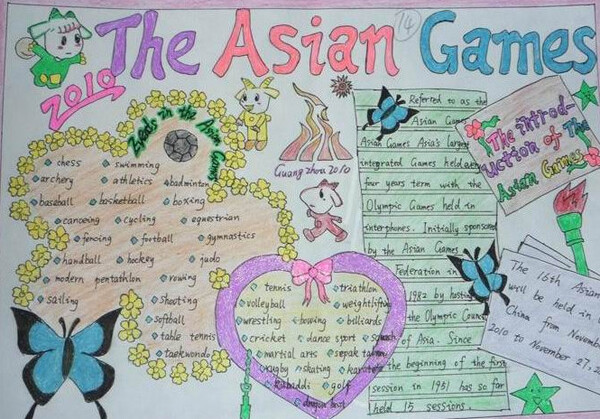 The Asian Games
14
2010
Events in the Asian Games
chess swimming
archery athletics badminton
baseball basketball boxing
canoeing cycling equestrian
fencing football gymnastics
handball hockey judo
modern pentathlon rowing
sailing shooting
softball
table tennis
taekwondo
Guang Zhou 2010
tennis triathlon
volleyball weightlifting
wrestling bowing billiards
cricket dance sport squash
martial arts sepak takraw
rugby skating karate
kabaddi golf
dragon boat
Referred to as the
Asian Games
Asian Games Asia's largest
integrated Games held every
four years term with the
Olympic Games held in
interphones. Initially sponsored
by the Asian Games
Federation in
1982 by hosting
the Olympic Council
of Asia Since
the beginning of the first
session in 1951 has so far
held 15 sessions.
The introd-
uction of The
Asian Games
The 16th Asian
will be held in
China from November
2010 to November 27, 2